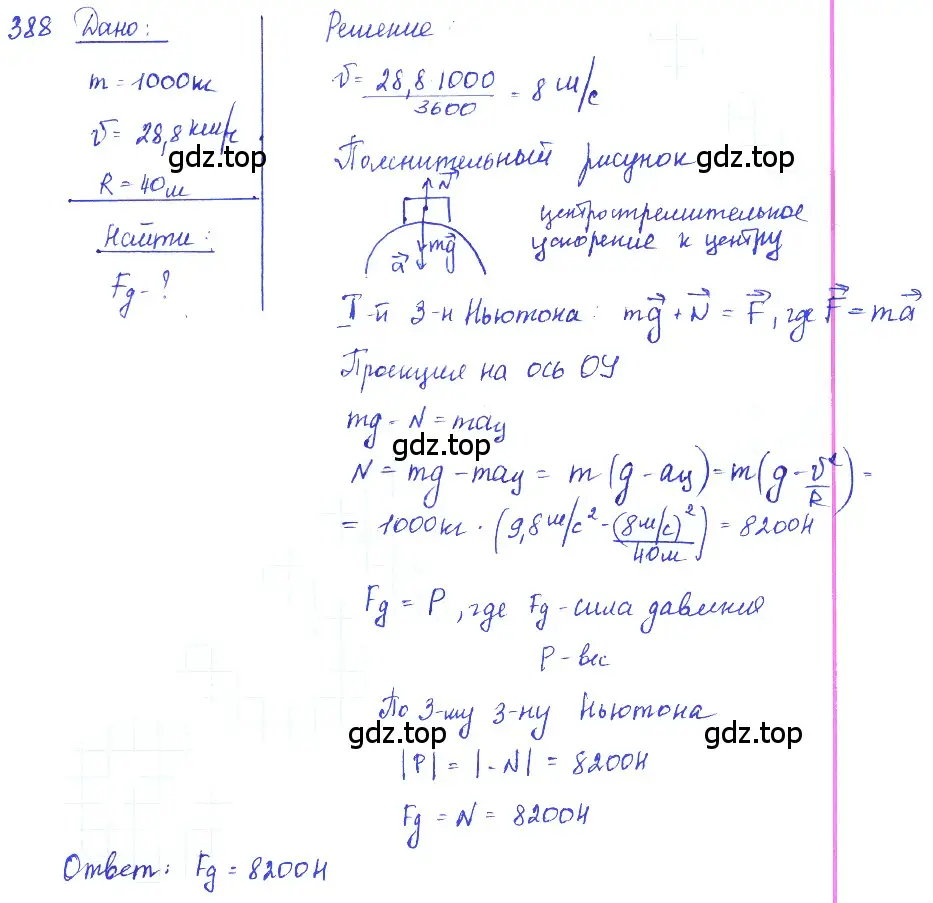 388 Дано:
m = 1000 кг
v = 28,8 км/ч
gdz.top
R = 40 м
Найти:
Fg - ?
Решение:
v = 28,8·1000/3600 = 8 м/с
Пояснительный рисунок
gdz.top
N
mg
a
центростремительное
ускорение к центру
I-й З-н Ньютона: mg + N = F, где F = ma
Проекция на ось ОУ
mg - N = maц
gdz.top
N = mg - maц = m(g - aц) = m(g - v²/R) =
= 1000 кг · (9,8 м/с² - (8 м/с)²/40 м) = 8200 Н
Fg = P, где Fg - сила давления
P - вес
По 3-му З-ну Ньютона
gdz.top gdz.top
|P| = |-N| = 8200 Н
Fg = N = 8200 Н
Ответ: Fg = 8200 Н